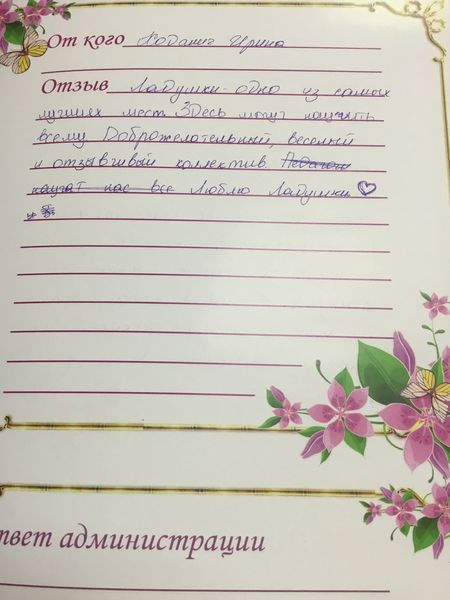 От кого Ходанич Ирина
Отзыв Ладушки-одно из самых
лучших мест Здесь могут научить
всему Доброжелательный, веселый
и отзывчивый коллектив. Педагоги
научат нас все Люблю Ладушки
твет администрации